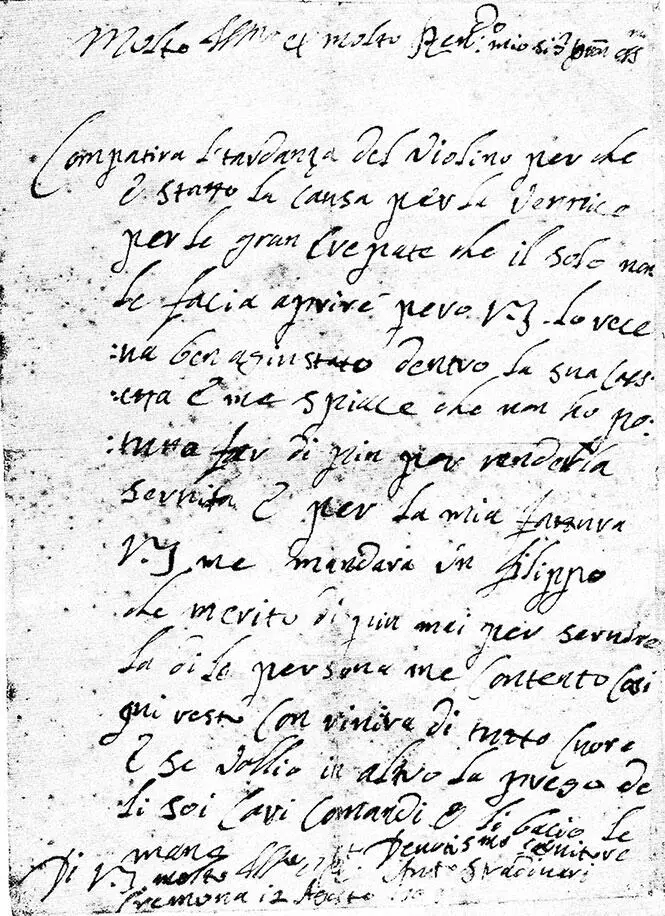 Molto Illre et molto Rend.o mio sig.
Compatira l'tardanza del violino per che
è statto la causa per la vernice
per le gran crepate che il sole non
le facia aprire pero V.S. lo rece
:va ben agiustato dentro la sua cas:
:etta è me spiace che non ho po:
:tutta far di piu per renderla
servita è per la mia fattura
V.S. me mandara un filippo
che merito di piu mai per servire
la di le persona me contento cosi
qui resto con di tutto cuore
è se vallio in altro la prego de
li soi cari comandi è li bacio le
mane
Di V.S. molto Illre Devotismo servitore
Cremona 12 Agosto Ant.o Stradiveri